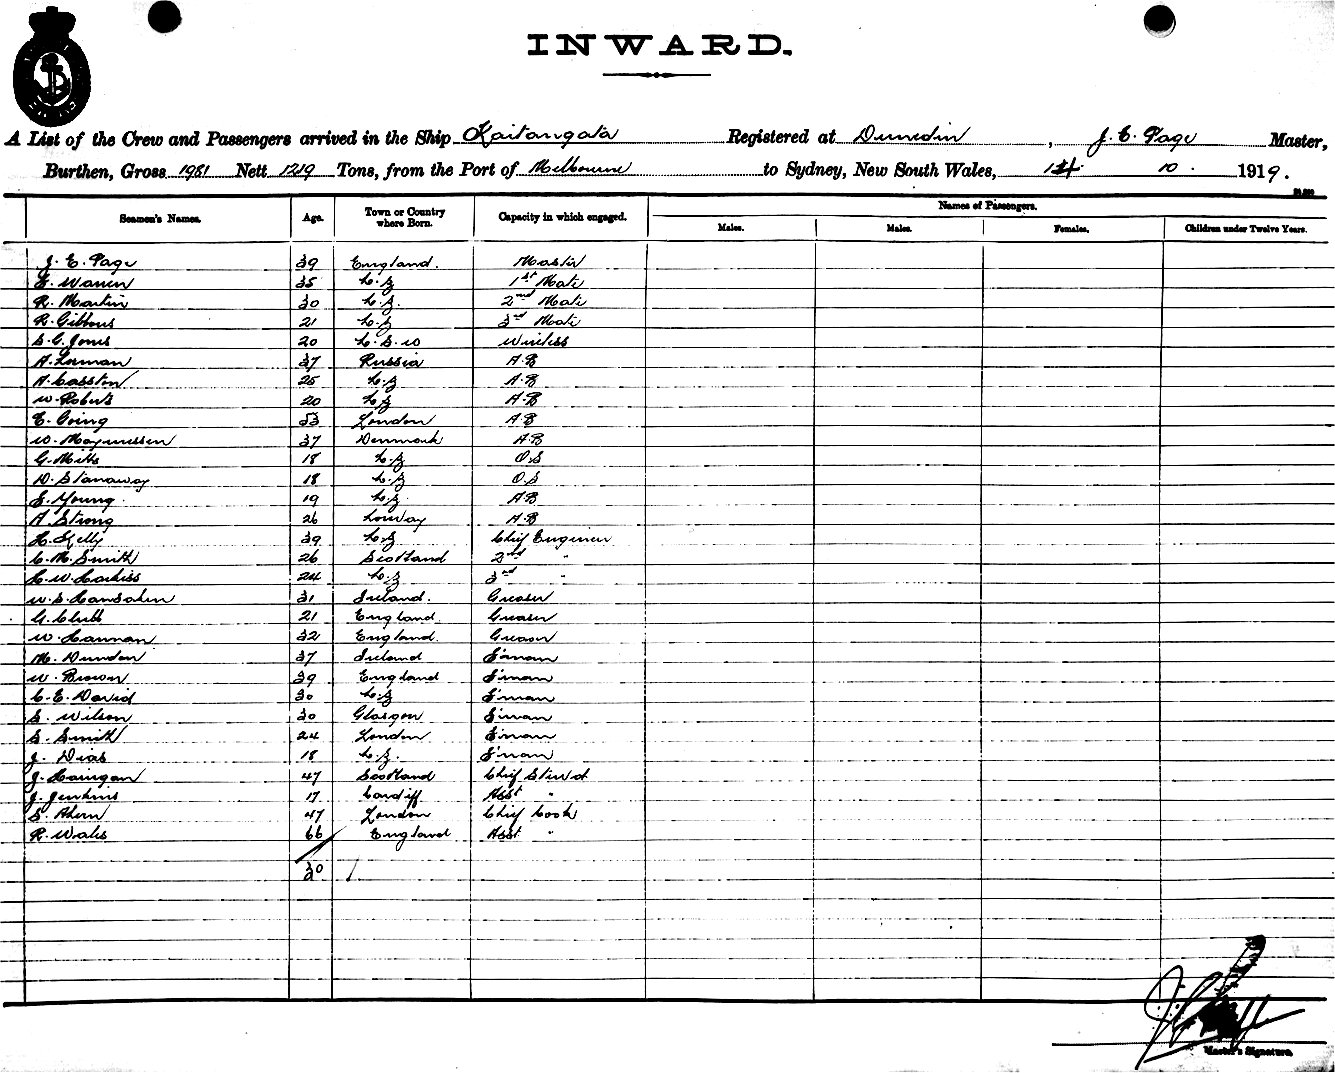 INWARD.
A List of the Crew and Passengers arrived in the Ship Kaitangata Registered at Dunedin, J. E. Page Master,
Burthen, Gross 1981 Nett 1219 Tons, from the Port of Melbourne to Sydney, New South Wales, 10. 1919.
Seamen's Names. Age. Town or Country where Born. Capacity in which engaged. Names of Passengers.
Males. Males. Females. Children under Twelve Years.
J. E. Page 39 England. Master
Warren 35 N.Z 1st Mate
R. Martin 30 N.Z. 2nd Mate
R. Gibbons 21 N.Z 3rd Mate
S. G. Jones 20 N.S.W Wireless
A. Lerman 37 Russia A.B
A. Casston 25 N.Z A.B
W. Roberts 20 N.Z A.B
E. Going 53 London A.B
W. Magnussen 37 Denmark A.B
G. Mills 18 N.Z O.S
D. Stanaway 18 N.Z O.S
S. Young 19 N.Z. A.B
A. Strong 26 Norway A.B
H. Kelly 39 N.Z Chief Engineer
C. M. Smith 26 Scotland 2nd "
24 N.Z 3rd "
W. S. 31 Ireland. Greaser
G. Clubb 21 England. Greaser
W. Hannan 32 England. Greaser
M. Dundon 37 Ireland F'man
W. Brown 39 England F'man
C. E. David 30 N.Z F'man
S. Wilson 30 Glasgow F'man
S. Smith 24 London F'man
J. Dias 18 N.Z. F'man
J. 47 Scotland Chief Stew'd
J. Jenkins 17 Cardiff Asst "
S. Ahern 47 London Chief Cook
R. Wales 66 England Asst "
30
Master's Signature.